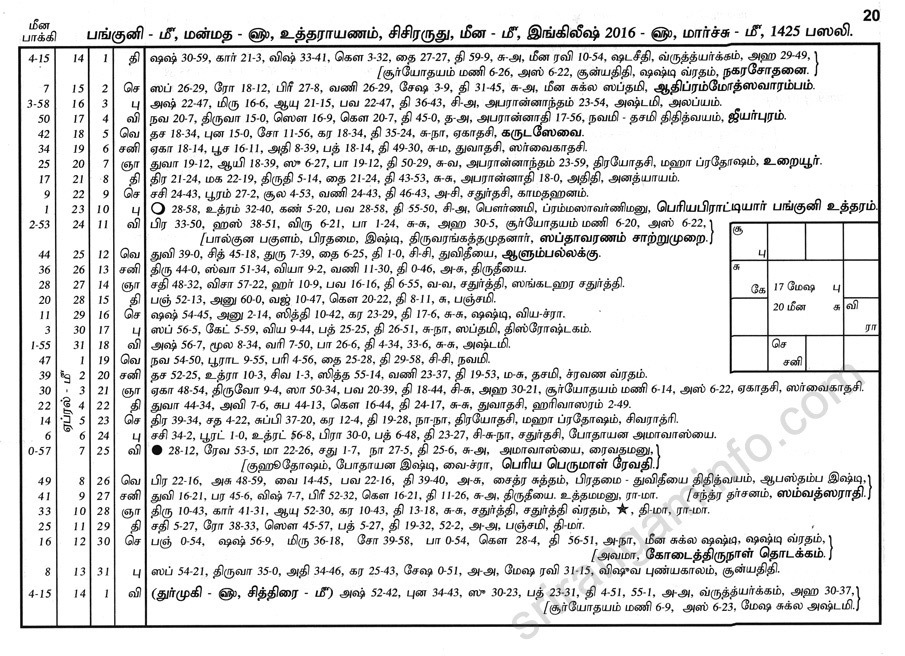 20
மீன பாக்கி
பங்குனி - மீ, மன்மத - ஹு, உத்தராயணம், சிசிரருது, மீன - மீ, இங்கிலீஷ் 2016 - ஹு, மார்ச்சு - மீ, 1425 பஸலி.
4-15 14 1 தி ஷஷ் 30-59, கார் 21-3, விஷ் 33-41, கௌ 3-32, தை 27-27, தி 59-9, சு-அ, மீன ரவி 10-54, ஷடசீதி, வ்ருத்யர்க்கம், அஹ 29-49,
[சூர்யோதயம் மணி 6-26, அஸ் 6-22, சூன்யதிதி, ஷஷ்டி வ்ரதம், நகரசோதனை.
7 15 2 செ ஸப் 26-29, ரோ 18-12, பிரீ 27-8, வணி 26-29, சேஷ 3-9, தி 31-45, சு-அ, மீன சுக்ல ஸப்தமி, ஆதிப்ரம்மோத்ஸவாரம்பம்.
3-58 16 3 பு அஷ் 22-47, மிரு 16-6, ஆயு 21-15, பவ 22-47, தி 36-43, சி-அ, அபரான்னாந்தம் 23-54, அஷ்டமி, அலப்யம்.
50 17 4 வி நவ 20-7, திருவா 15-0, ஸௌ 16-9, கௌ 20-7, தி 45-0, த-அ, அபரான்னாதி 17-56, நவமி - தசமி திதித்வயம், ஜீயர்புரம்.
42 18 5 வெ தச 18-34, புன 15-0, சோ 11-56, கர 18-34, தி 35-24, சு-நா, ஏகாதசி, கருடஸேவை.
34 19 6 சனி ஏகா 18-14, பூச 16-11, அதி 8-39, பத் 18-14, தி 49-30, சு-ம, துவாதசி, ஸர்வைகாதசி.
25 20 7 ஞா துவா 19-12, ஆயி 18-39, ஸு 6-27, பா 19-12, தி 50-29, சு-வ, அபரான்னாந்தம் 23-59, திரயோதசி, மஹா ப்ரதோஷம், உறையூர்.
17 21 8 தி திர 21-24, மக 22-19, திருதி 5-14, தை 21-24, தி 43-53, சு-சு, அபரான்னாதி 18-0, அதிதி, அனத்யாயம்.
9 22 9 செ சசி 24-43, பூரம் 27-2, சூல 4-53, வணி 24-43, தி 46-43, அ-சி, சதுர்தசி, காமதஹனம்.
1 23 10 பு 28-58, உத்ரம் 32-40, கண் 5-20, பவ 28-58, தி 55-50, சி-அ, பௌர்ணமி, ப்ரம்மஸாவர்ணிமனு, பெரியபிராட்டியார் பங்குனி உத்தரம்.
2-53 24 11 வி பிர 33-50, ஹஸ் 38-51, விரு 6-21, பா 1-24, சு-சு, அஹ 30-5, சூர்யோதயம் மணி 6-20, அஸ் 6-22,
[பால்குன பகுளம், பிரதமை, இஷ்டி, திருவரங்கத்தமுதனார், ஸப்தாவரணம் சாற்றுமுறை.
44 25 12 வெ துவி 39-0, சித் 45-18, துரு 7-39, தை 6-25, தி 1-0, சி-சி, துவிதீயை, ஆளும்பல்லக்கு.
36 26 13 சனி திரு 44-0, ஸ்வா 51-34, வியா 9-2, வணி 11-30, தி 0-46, அ-சு, திருதீயை.
28 27 14 ஞா சதி 48-32, விசா 57-22, ஹர் 10-9, பவ 16-16, தி 6-55, வ-வ, சதுர்த்தி, ஸங்கடஹர சதுர்த்தி.
20 28 15 தி பஞ் 52-13, அனு 60-0, வஜ் 10-47, கௌ 20-22, தி 8-11, சு, பஞ்சமி.
11 29 16 செ ஷஷ் 54-45, அனு 2-14, ஸித்தி 10-42, கர 23-29, தி 17-6, சு-சு, ஷஷ்டி, விய-ச்ரா.
3 30 17 பு ஸப் 56-5, கேட் 5-59, விய 9-44, பத் 25-25, தி 26-51, சு-நா, ஸப்தமி, திஸ்ரோஷ்டகம்.
1-55 31 18 வி அஷ் 56-7, மூல 8-34, வரி 7-50, பா 26-6, தி 4-34, 33-6, சு-சு, அஷ்டமி.
47 1 19 வெ நவ 54-50, பூராட 9-55, பரி 4-56, தை 25-28, தி 29-58, சி-சி, நவமி.
39 2 20 சனி தச 52-25, உத்ரா 10-3, சிவ 1-3, ஸித்த 55-14, வணி 23-37, தி 19-53, ம-சு, தசமி, ச்ரவண வ்ரதம்.
ஏப்ரல் - மீ
30 3 21 ஞா ஏகா 48-54, திருவோ 9-4, ஸா 50-34, பவ 20-39, தி 18-44, சி-சு, அஹ 30-21, சூர்யோதயம் மணி 6-14, அஸ் 6-22, ஏகாதசி, ஸர்வைகாதசி.
22 4 22 தி துவா 44-34, அவி 7-6, சுப 44-13, கௌ 16-44, தி 24-17, சு-சு, துவாதசி, ஹரிவாஸரம் 2-49.
14 5 23 செ திர 39-34, சத 4-22, சுப்பி 37-20, கர 12-4, தி 19-28, நா-நா, திரயோதசி, மஹா ப்ரதோஷம், சிவராத்ரி.
6 6 24 பு சசி 34-2, பூரட் 1-0, உத்ரட் 56-8, பிரா 30-0, பத் 6-48, தி 23-27, சி-சு-நா, சதுர்தசி, போதாயன அமாவாஸ்யை.
0-57 7 25 வி 28-12, ரேவ 53-5, மா 22-26, சது 1-7, நா 27-5, தி 25-6, சு-அ, அமாவாஸ்யை, ரைவதமனு,
[குஹூதோஷம், போதாயன இஷ்டி, வை-ச்ரா, பெரிய பெருமாள் ரேவதி.
49 8 26 வெ பிர 22-16, அசு 48-59, வை 14-45, பவ 22-16, தி 39-40, அ-சு, சைத்ர சுத்தம், பிரதமை - துவிதீயை திதித்வயம், ஆபஸ்தம்ப இஷ்டி,
41 9 27 சனி துவி 16-21, பர 45-6, விஷ் 7-7, பிரீ 52-32, கௌ 16-21, தி 11-26, சு-அ, திருதீயை. உத்தமமனு, ரா-மா. [சந்த்ர தர்சனம், ஸம்வத்ஸராதி.
33 10 28 ஞா திரு 10-43, கார் 41-31, ஆயு 52-30, கர 10-43, தி 13-18, சு-சு, சதுர்த்தி, சதுர்த்தி வ்ரதம், ★, தி-மா, ரா-மா.
25 11 29 தி சதி 5-27, ரோ 38-33, ஸௌ 45-57, பத் 5-27, தி 19-32, 52-2, அ-அ, பஞ்சமி, தி-மா.
16 12 30 செ பஞ் 0-54, ஷஷ் 56-9, மிரு 36-18, சோ 39-58, பா 0-54, கௌ 28-4, தி 56-51, அ-நா, மீன சுக்ல ஷஷ்டி, ஷஷ்டி வ்ரதம்,
[அவமா, கோடைத்திருநாள் தொடக்கம்.
8 13 31 பு ஸப் 54-21, திருவா 35-0, அதி 34-46, கர 25-43, சேஷ 0-51, அ-அ, மேஷ ரவி 31-15, விஷுவ புண்யகாலம், சூன்யதிதி.
4-15 14 1 வி (துர்முகி - ஹு, சித்திரை - மீ) அஷ் 52-42, புன 34-43, ஸு 30-23, பத் 23-31, தி 4-51, 55-1, அ-அ, வ்ருத்யர்க்கம், அஹ 30-37,
[சூர்யோதயம் மணி 6-9, அஸ் 6-23, மேஷ சுக்ல அஷ்டமி.
சூ பு
சு கே
17 மேஷ பு
20 மீன சு
வி ரா
செ சனி
srirangaminfo.com